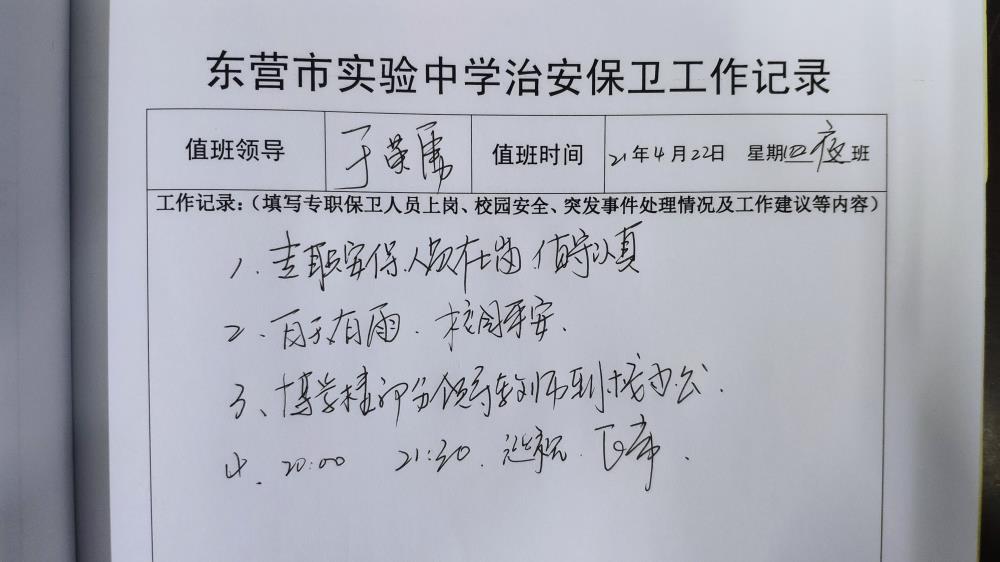 东营市实验中学治安保卫工作记录
值班领导 于荣 值班时间 21年4月22日 星期四夜班
工作记录:(填写专职保卫人员上岗、校园安全、突发事件处理情况及工作建议等内容)
1、专职安保人员在岗 值守认真
2、白天有雨.校园平安.
3、博学楼部分领导教师到校办公.
4、20:00 21:30.巡视正常.